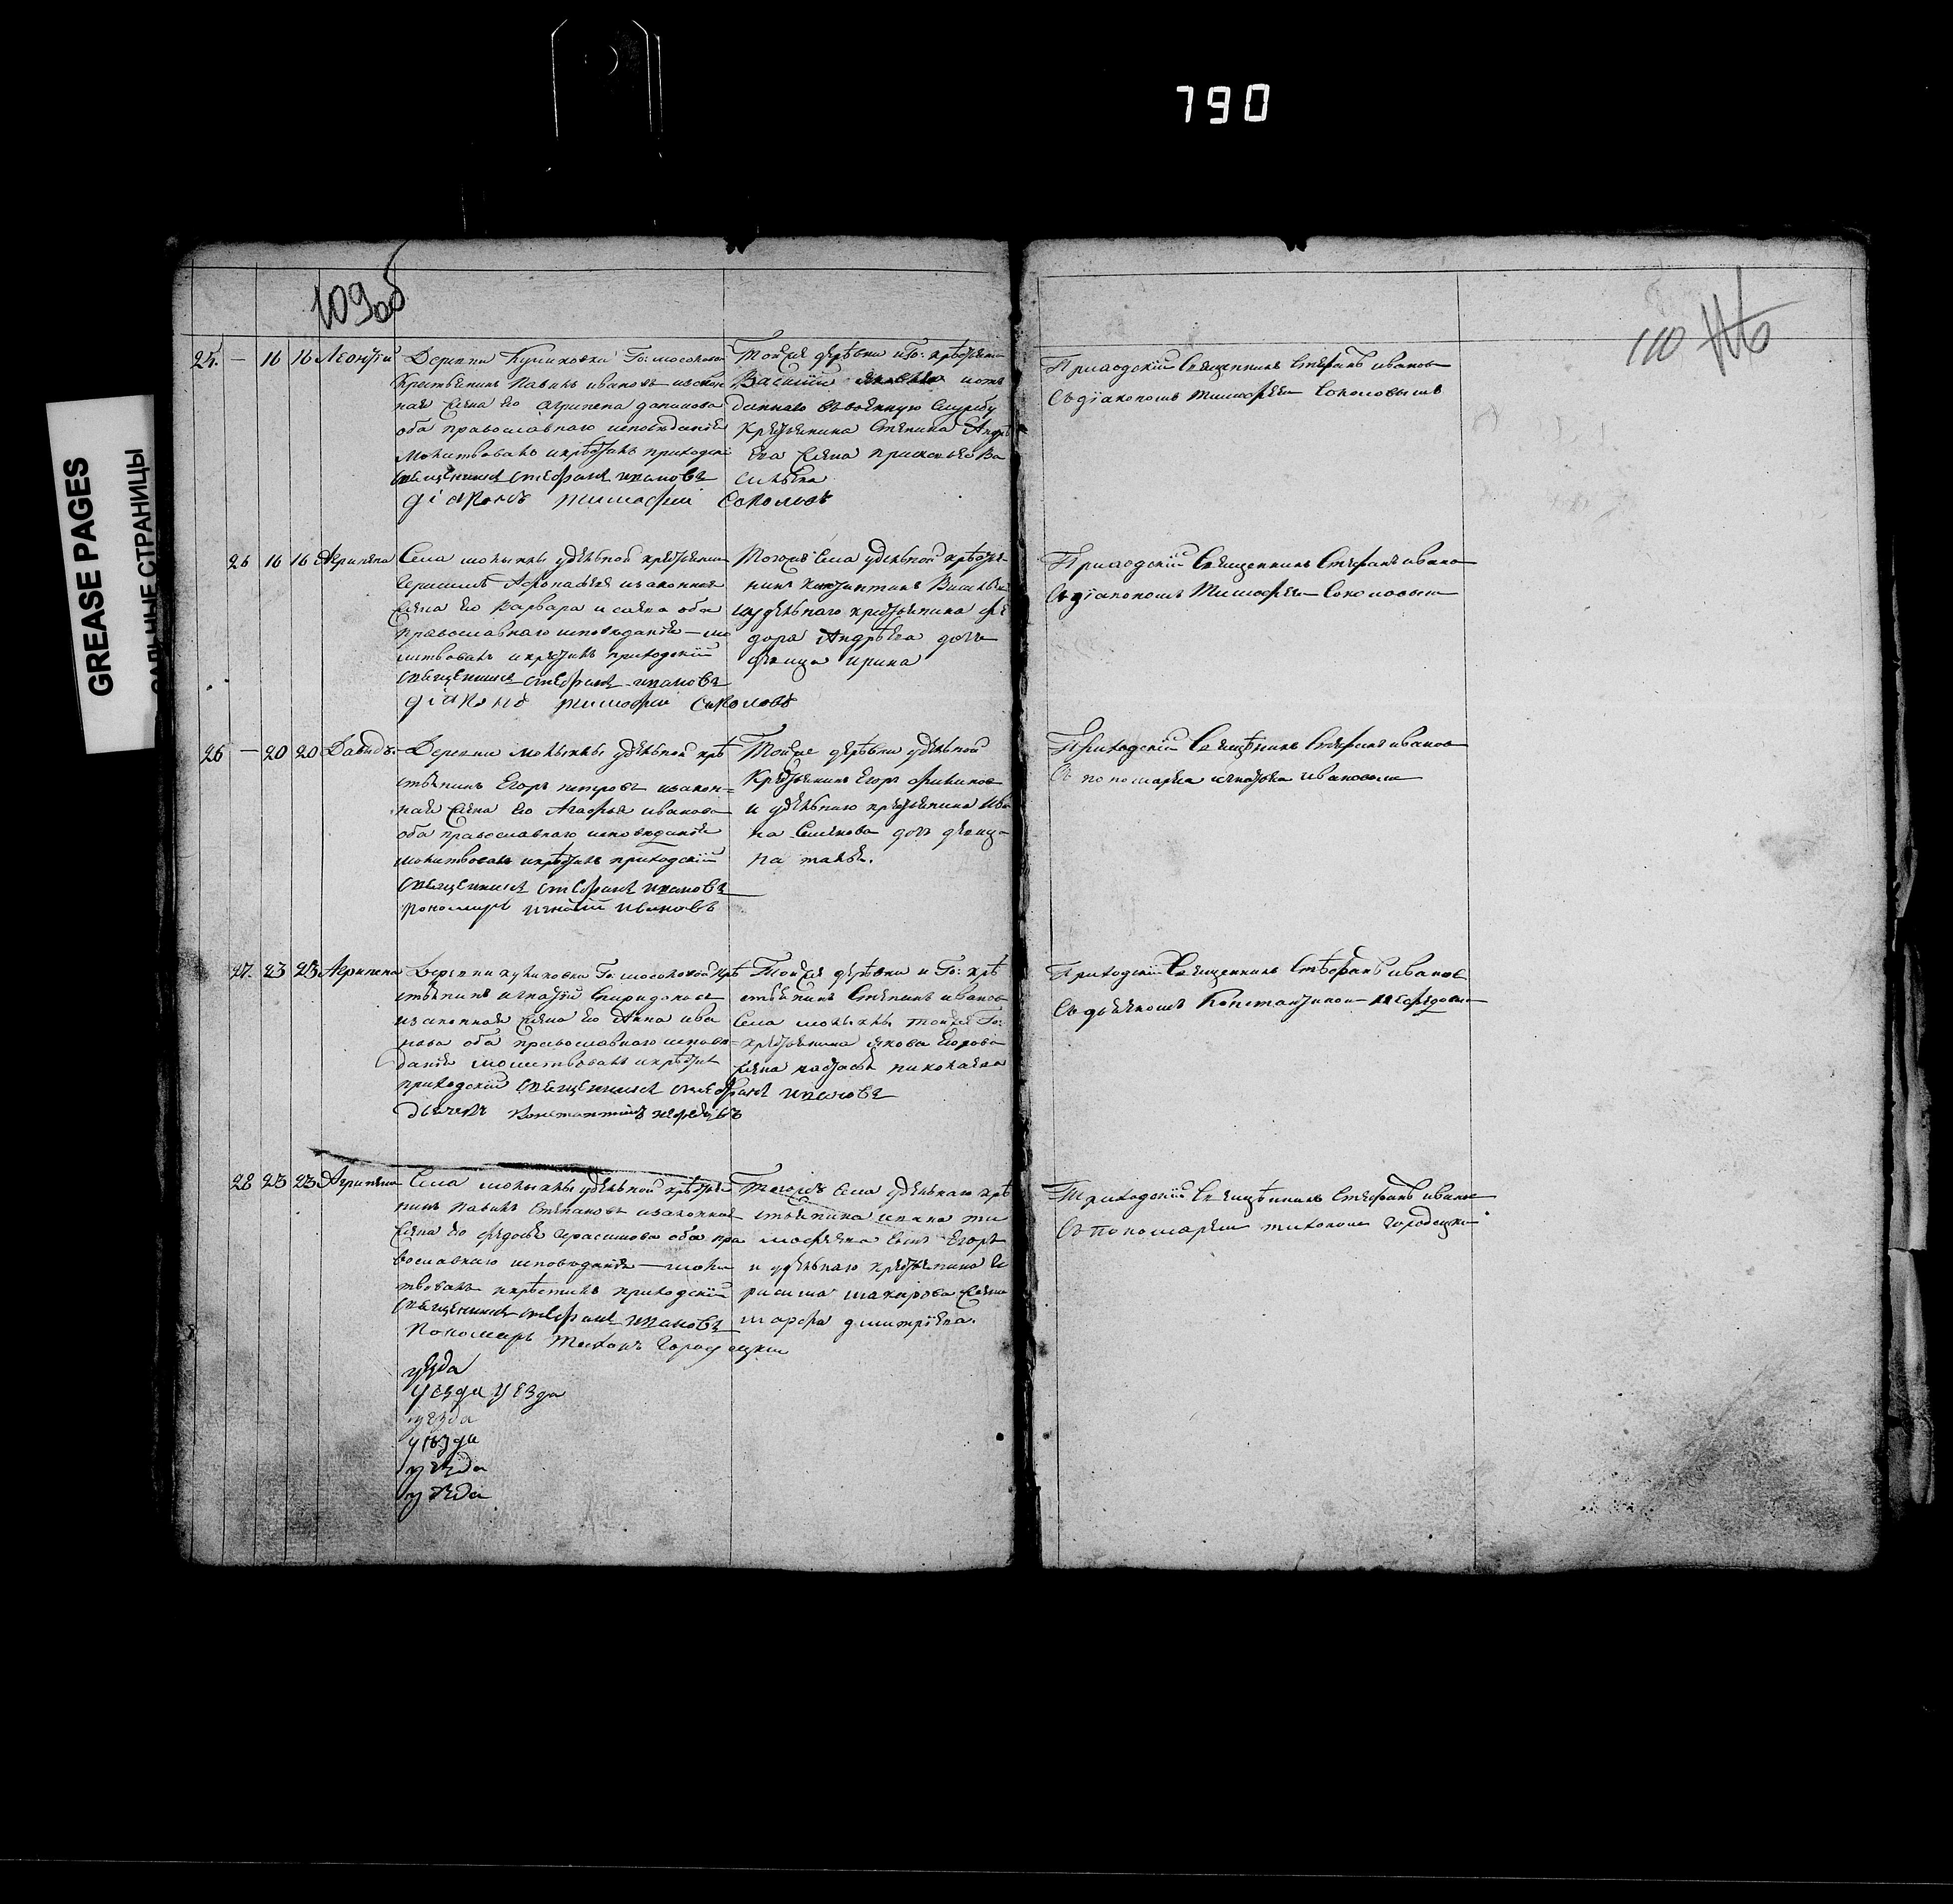 790
GREASE PAGES
САЛЬНЫЕ СТРАНИЦЫ
109об
110
25. — 16 16 Леонтий
Деревни Куликовки Го: мосоловой
Крестьянинъ Павилъ ивановъ изакон
ная жена его агрипена
оба православнаго исповѣданія
Молитвовалъ икрестилъ приходскій
священникъ стефанъ ивановъ
діаконъ тимофей Соколовъ
Тойже дерѣвни иГо: крѣстьянинъ
Василій
даннаго въвоенную Службу
Крестьянина Степана Андрѣ
ева жена Ва
сильева
Приходскій Священникъ Стефанъ ивановъ
Съдіакономъ Тимофѣем Соколовымъ
26 16 16 Агрипена
Села удельной крестьянинъ
Герасимъ Афонасьев изаконная
жена его Варвара оба
православнаго исповѣданія — мо
литвовалъ икрестилъ приходскій
священникъ стефанъ ивановъ
діаконъ тимофей Соколовъ
Тогоже Села удельной крѣстья
нинъ Константинъ Василье
иудельнаго крестьянина фе
дора Андрѣева дочь
девица ирина
Приходскій Священникъ Стефанъ ивано
Съдіакономъ Тимофѣем Соколовым
26 — 20 20 Давидъ
Деревни удѣльной крѣ
стьянинъ Егоръ петровъ изакон=
ная жена его Агафья иванова
оба православнаго исповѣданія
молитвовалъ икрестилъ приходскій
священникъ стефанъ ивановъ
пономарь игнатій Ивановъ
Тойже дерѣвни удѣльной
Крестьянинъ Егоръ
и удельнаго крестьянина Ива
на Семенова дочь девица
на талья.
Приходскій Священникъ Стефанъ иванов
Съ пономарем игнатьем Ивановым
27. 23 23 Агрипена
Деревни куликовки Го: мосоловой Крѣ
стьянинъ игнатій Спиридоновъ
изаконная жена его Анна ива
нова оба православнаго исповѣ=
данія молитвовалъ икрѣстилъ
приходскій священникъ стефанъ ивановъ
дьячекъ Константинъ нефедовъ
Тойже дерѣвни и Го: крѣ
стьянинъ Степанъ иванов
Села тойже Го:
крестьянина якова Егорова
жена настасья николаева
Приходскій Священникъ Стефанъ иванов
Съ дьячкомъ Константином нефедовым
28 23 23 Агрипена
Села удельной крѣстья
нинъ Павилъ Степановъ изаконная
жена его федосья Герасимова оба пра
вославнаго исповѣданія — моли
твовалъ икрестилъ приходскій
священникъ стефанъ ивановъ
Пономарь Тихонъ Городецкій
Тогожъ Села удельнаго крѣ
стьянина ивана ти
мофеева сынъ Егоръ
и удельнаго крестьянина Ге
расима жена
марфа дмитріева.
Приходскій Священникъ Стефанъ иванов
Съ пономарем тихоном городецким
уезда
уезда уезда
уезда
уезда
уезда
уезда